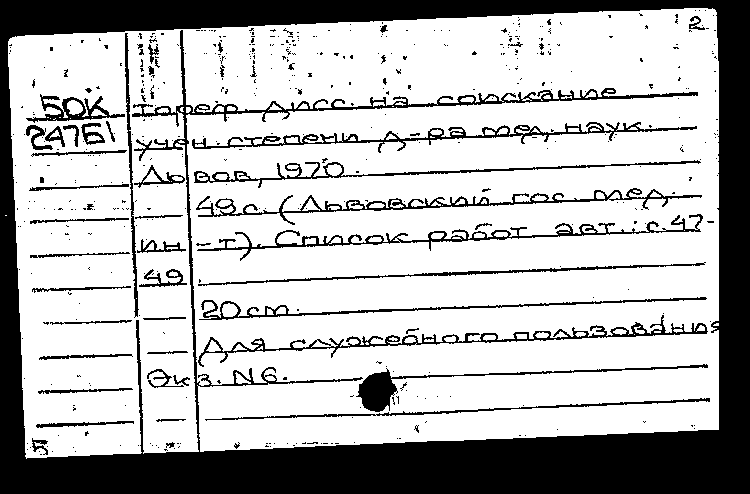 2
50К тореф. Дисс. на соискание
24761 учен. степени д-ра мед. наук.
Львов, 1970.
49с. (Львовский гос. мед.
ин-т). Список работ авт.: с.47-
49.
20см.
Для служебного пользования
Экз. N6.
5